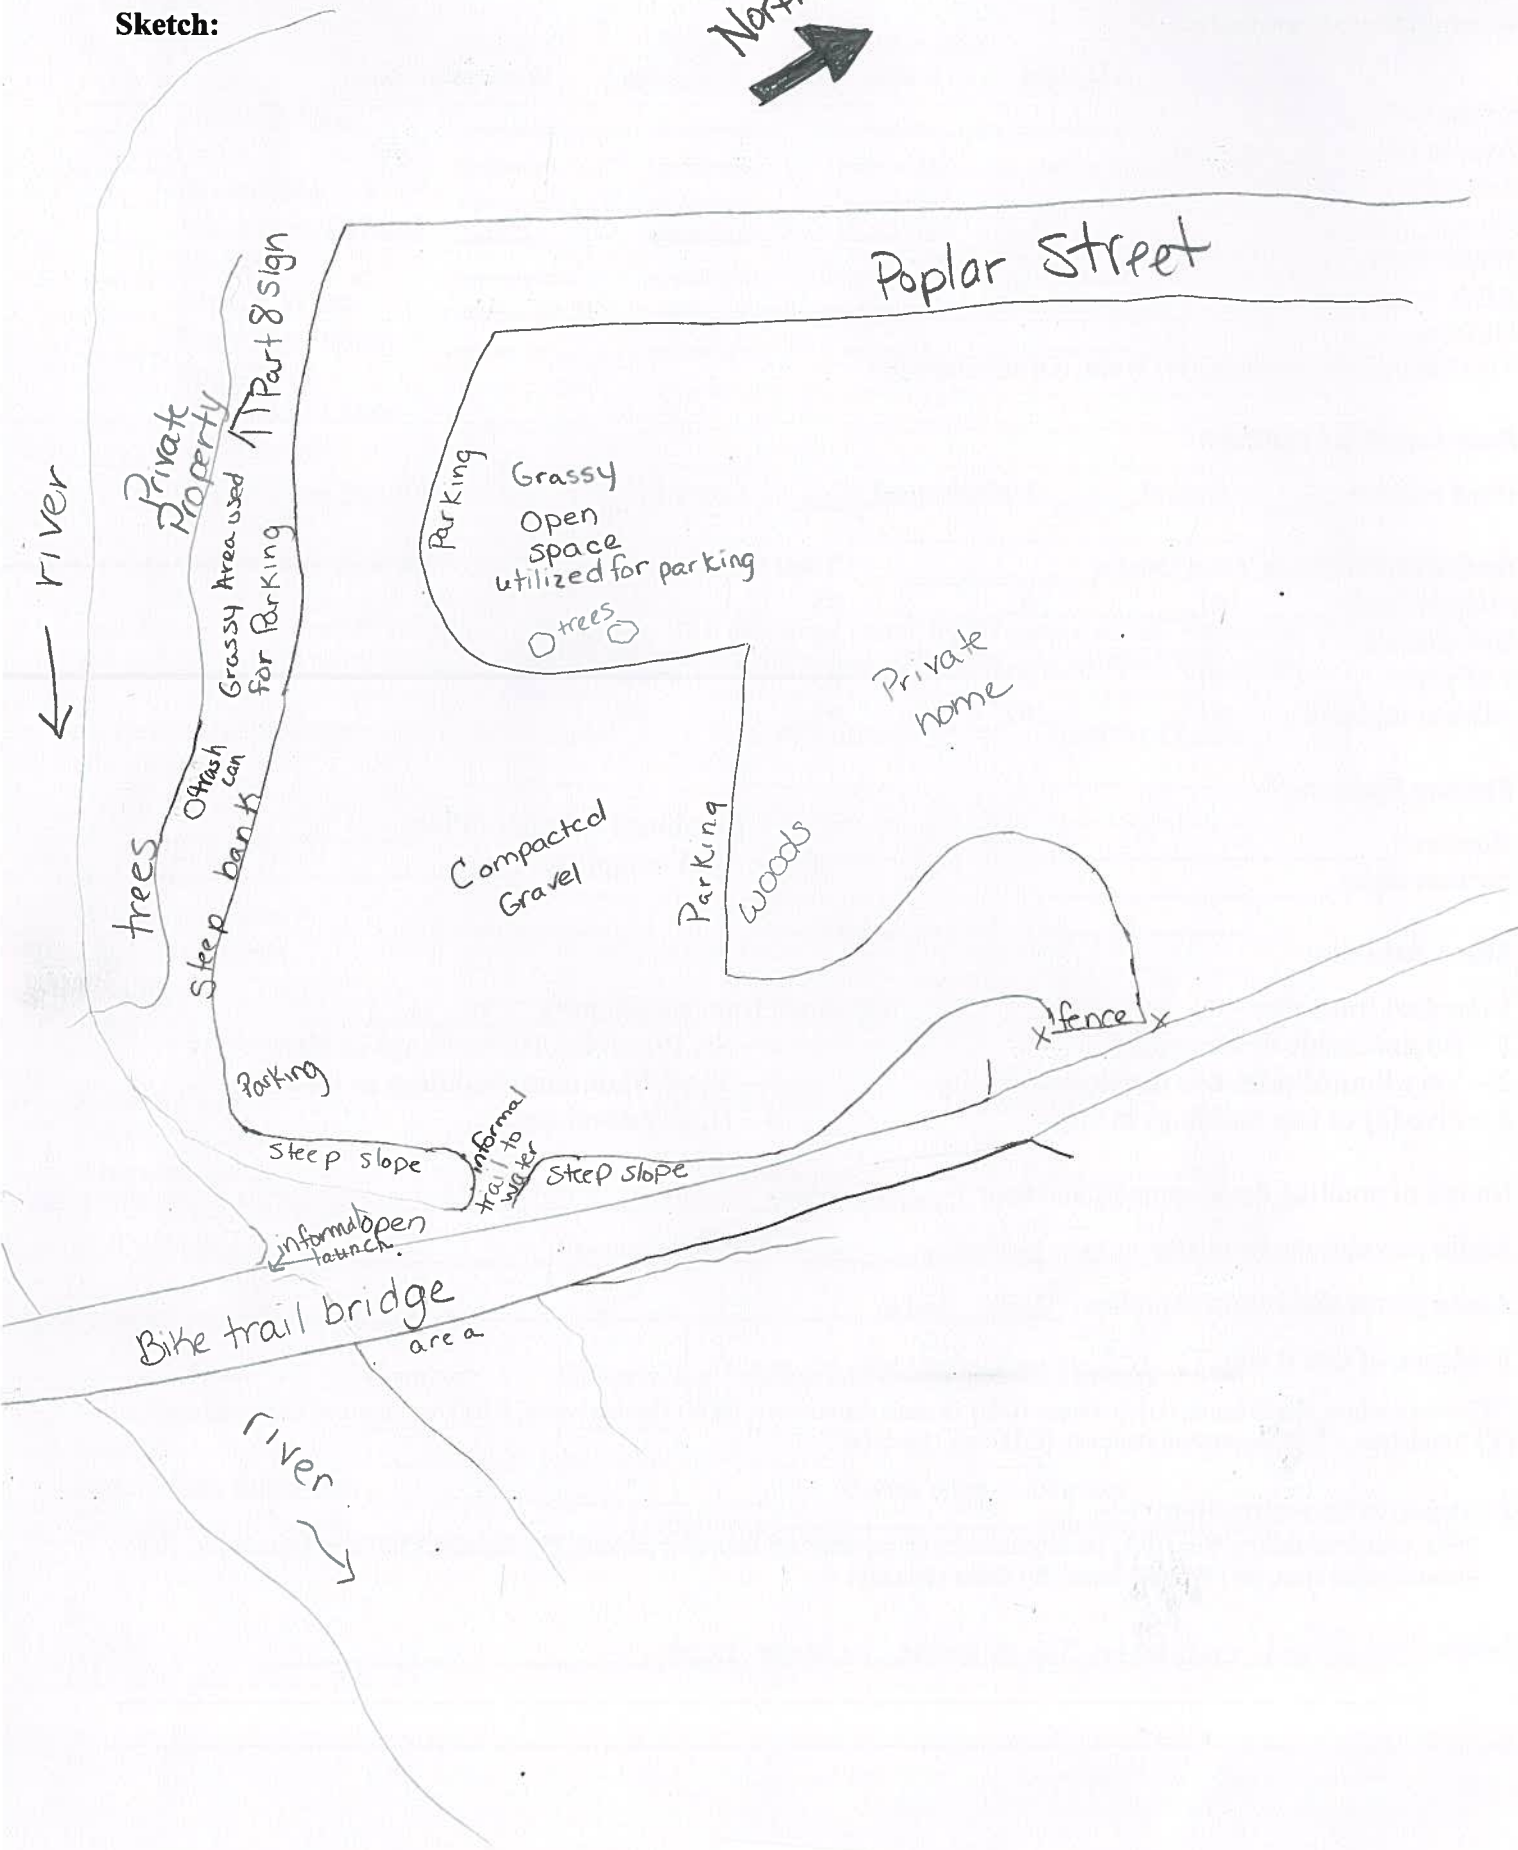 Sketch:
North
Poplar Street
Part 8 sign
Private
Property
river
Grassy Area used
for Parking
Parking
Grassy
Open
space
utilized for parking
trees
Private
home
trash
can
Steep bank
trees
Compacted
Gravel
Parking
woods
fence
x
x
Parking
Steep slope
informal
trail to
water
Steep slope
informal open
launch.
Bike trail bridge
area
river